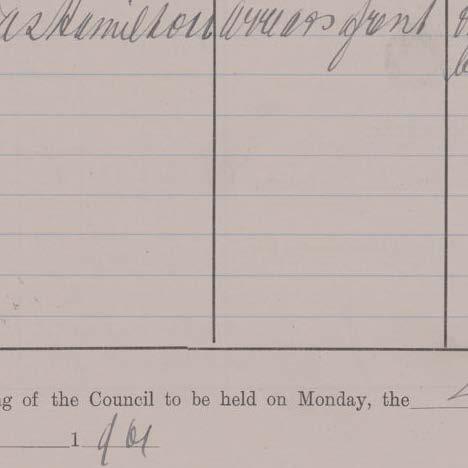 as Hamilton Arrears of rent
ng of the Council to be held on Monday, the
1901